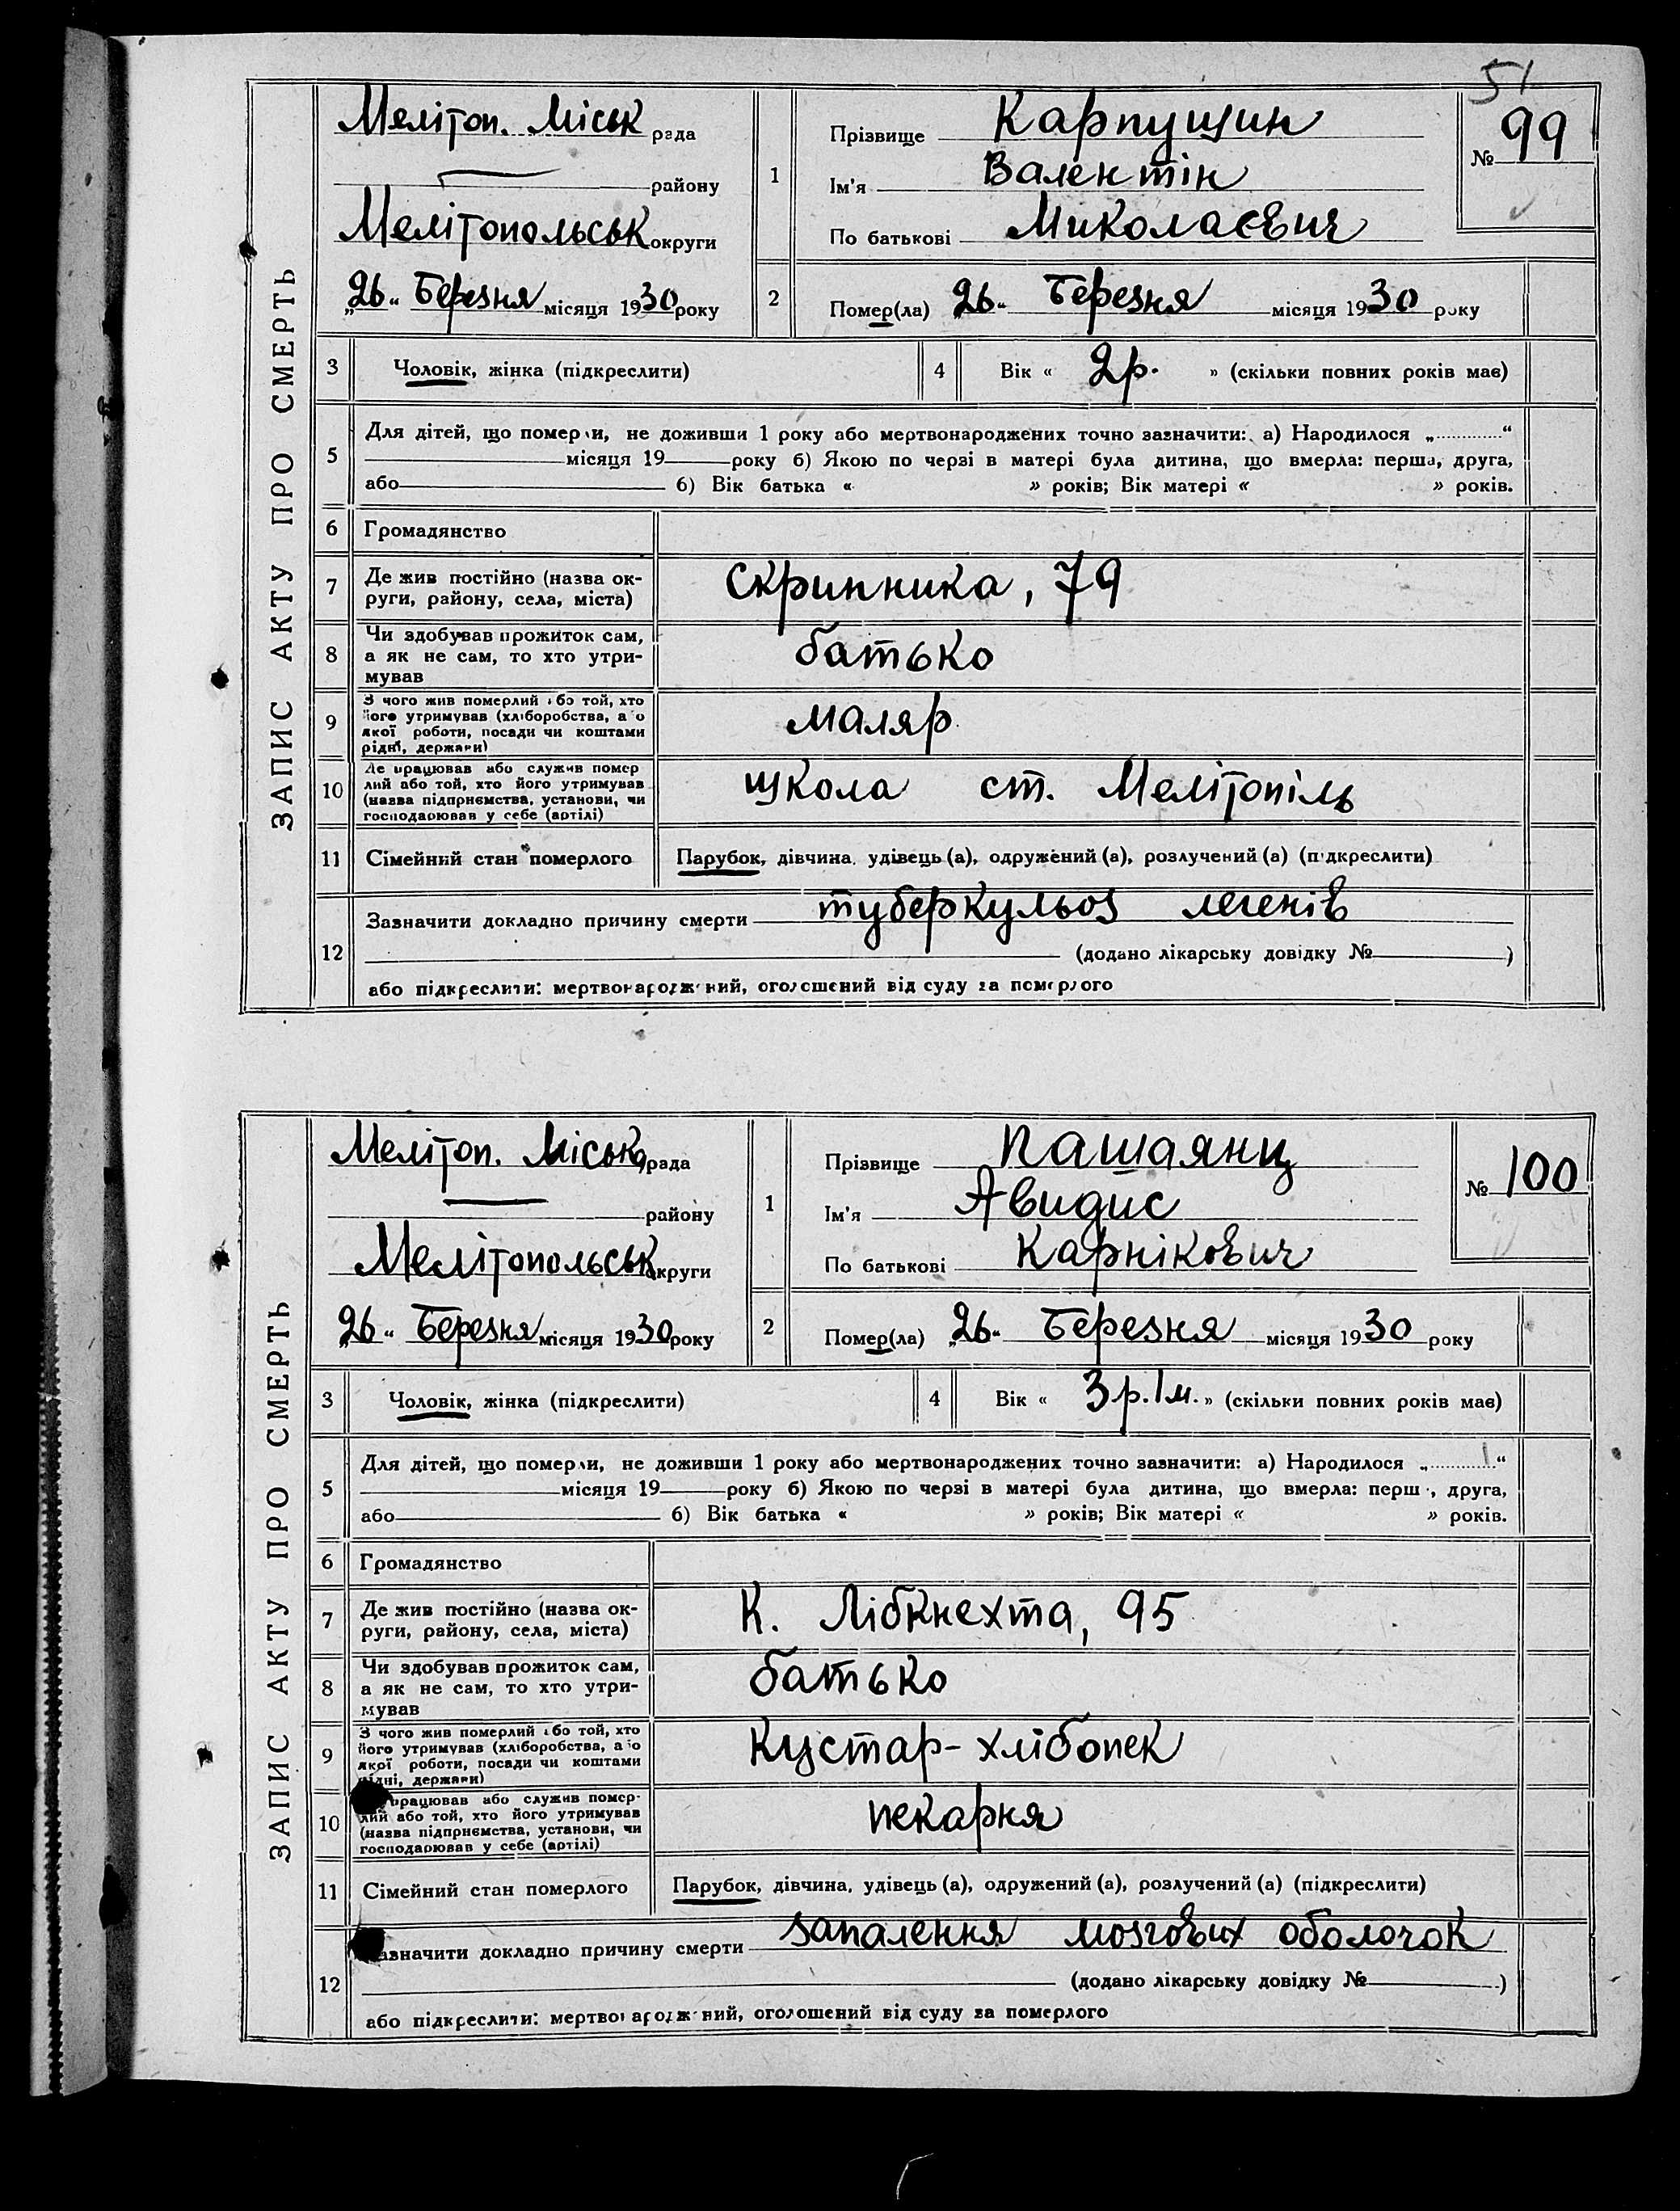 51
ЗАПИС АКТУ ПРО СМЕРТЬ
Меліт̄оп. Міськ рада
району
Меліт̄опольськ округи
„26“ Березня місяця 1930 року
1
Прізвище Карпущин
Ім'я Валентін
По батькові Миколаєвич
№ 99
2
Помер(ла) „26“ Березня місяця 1930 року
3 Чоловік, жінка (підкреслити)
4 Вік « 2 р. » (скільки повних років має)
5 Для дітей, що померли, не доживши 1 року або мертвонароджених точно зазначити: а) Народилося „..........“
місяця 19 року б) Якою по черзі в матері була дитина, що вмерла: перша, друга,
або б) Вік батька « » років; Вік матері « » років.
6 Громадянство
7 Де жив постійно (назва ок-
руги, району, села, міста)
Скрипника, 79
8 Чи здобував прожиток сам,
а як не сам, то хто утри-
мував
батько
9 З чого жив померлий або той, хто
його утримував (хліборобства, або
якої роботи, посади чи коштами
рідні, держави)
маляр
10 Де працював або служив помер
лий або той, хто його утримував
(назва підприємства, установи, чи
господарював у себе (артілі)
школа ст. Мелітопіль
11 Сімейний стан померлого Парубок, дівчина, удівець (а), одружений (а), розлучений (а) (підкреслити)
12 Зазначити докладно причину смерти туберкульоз легенів
(додано лікарську довідку № )
або підкреслити: мертвонароджений, оголошений від суду за померлого
ЗАПИС АКТУ ПРО СМЕРТЬ
Мелітоп. Міськ рада
району
Мелітопольськ округи
„26“ Березня місяця 1930 року
1
Прізвище Пашаянц
Ім'я Авидис
По батькові Карнікович
№ 100
2
Помер(ла) „26“ Березня місяця 1930 року
3 Чоловік, жінка (підкреслити)
4 Вік « 3 р. 1 м. » (скільки повних років має)
5 Для дітей, що померли, не доживши 1 року або мертвонароджених точно зазначити: а) Народилося „..........“
місяця 19 року б) Якою по черзі в матері була дитина, що вмерла: перша, друга,
або б) Вік батька « » років; Вік матері « » років.
6 Громадянство
7 Де жив постійно (назва ок-
руги, району, села, міста)
К. Лібкнехта, 95
8 Чи здобував прожиток сам,
а як не сам, то хто утри-
мував
батько
9 З чого жив померлий або той, хто
його утримував (хліборобства, або
якої роботи, посади чи коштами
рідні, держави)
Кустар-хлібопек
10 працював або служив помер-
лий або той, хто його утримував
(назва підприємства, установи, чи
господарював у себе (артілі)
пекарня
11 Сімейний стан померлого Парубок, дівчина, удівець (а), одружений (а), розлучений (а) (підкреслити)
12 Зазначити докладно причину смерти запалення мозгових оболочок
(додано лікарську довідку № )
або підкреслити: мертвонароджений, оголошений від суду за померлого